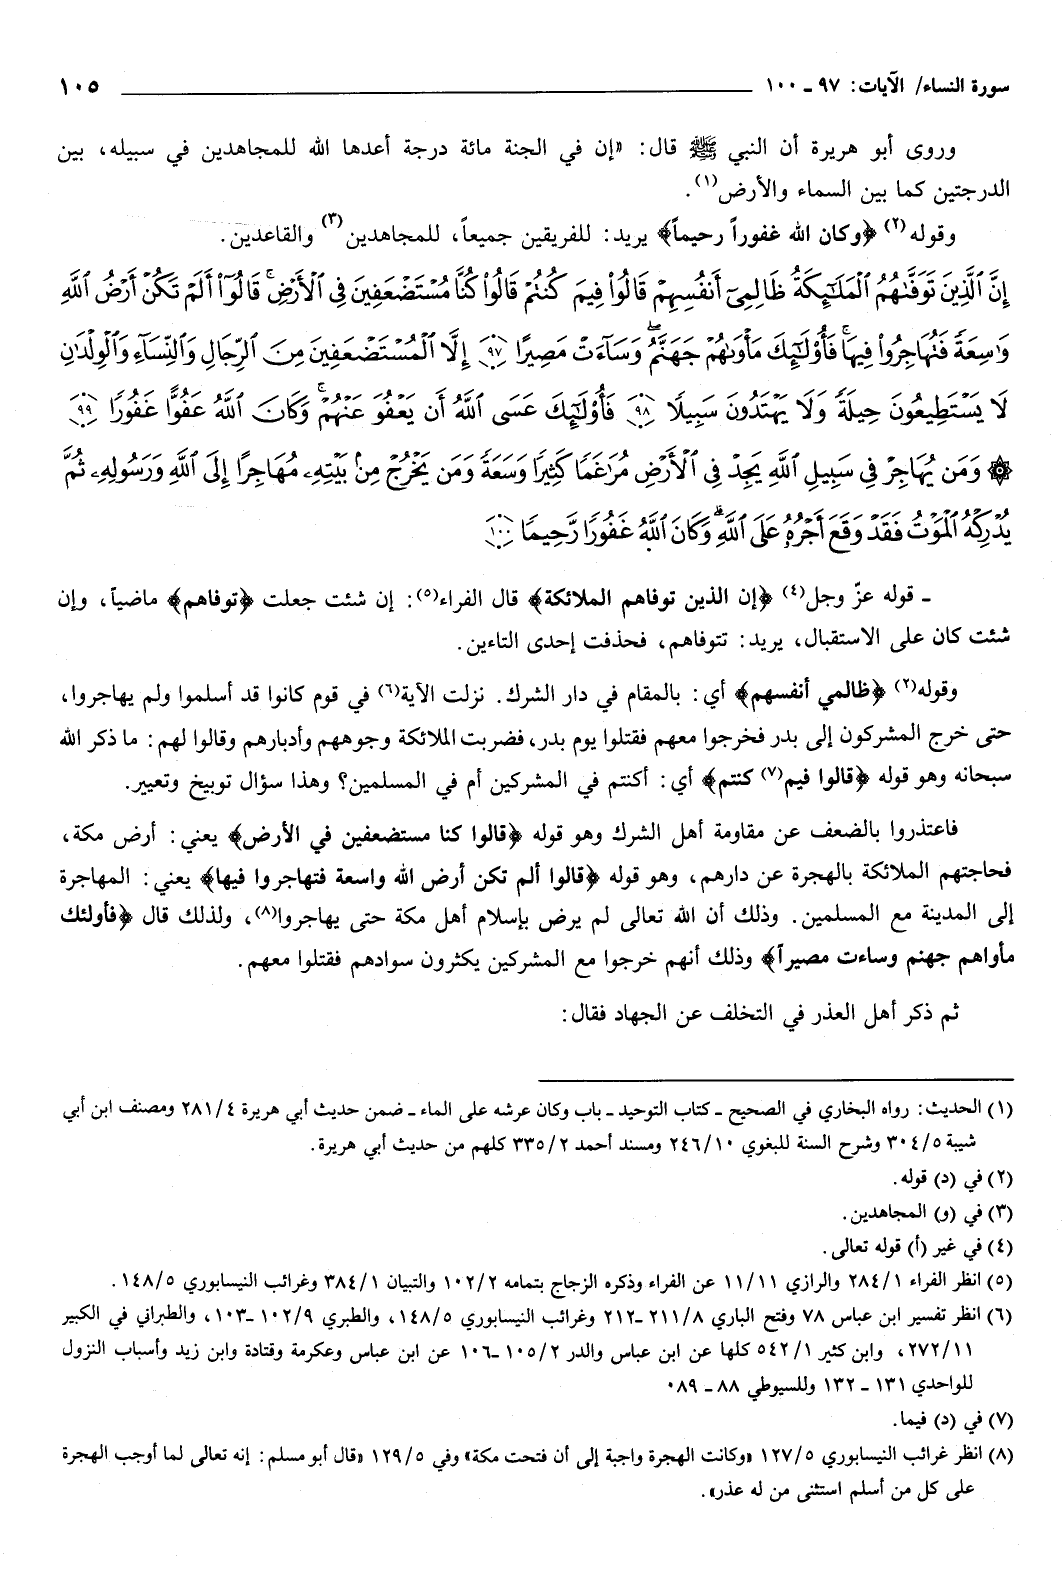 سورة النساء/ الآيات: ٩٧ ـ ١٠٠ ١٠٥
وروى أبو هريرة أن النبي ﷺ قال: «إن في الجنة مائة درجة أعدها الله للمجاهدين في سبيله، بين
الدرجتين كما بين السماء والأرض(١).
وقوله(٢) ﴿وكان الله غفوراً رحيماً﴾ يريد: للفريقين جميعاً، للمجاهدين(٣) والقاعدين.
إِنَّ ٱلَّذِينَ تَوَفَّىٰهُمُ ٱلْمَلَٰٓئِكَةُ ظَالِمِىٓ أَنفُسِهِمْ قَالُوا۟ فِيمَ كُنتُمْ قَالُوا۟ كُنَّا مُسْتَضْعَفِينَ فِى ٱلْأَرْضِ ۚ قَالُوٓا۟ أَلَمْ تَكُنْ أَرْضُ ٱللَّهِ
وَٰسِعَةً فَتُهَاجِرُوا۟ فِيهَا ۚ فَأُو۟لَٰٓئِكَ مَأْوَىٰهُمْ جَهَنَّمُ ۖ وَسَآءَتْ مَصِيرًا ۝٩٧ إِلَّا ٱلْمُسْتَضْعَفِينَ مِنَ ٱلرِّجَالِ وَٱلنِّسَآءِ وَٱلْوِلْدَٰنِ
لَا يَسْتَطِيعُونَ حِيلَةً وَلَا يَهْتَدُونَ سَبِيلًا ۝٩٨ فَأُو۟لَٰٓئِكَ عَسَى ٱللَّهُ أَن يَعْفُوَ عَنْهُمْ ۚ وَكَانَ ٱللَّهُ عَفُوًّا غَفُورًا ۝٩٩
۞ وَمَن يُهَاجِرْ فِى سَبِيلِ ٱللَّهِ يَجِدْ فِى ٱلْأَرْضِ مُرَٰغَمًا كَثِيرًا وَسَعَةً وَمَن يَخْرُجْ مِنۢ بَيْتِهِۦ مُهَاجِرًا إِلَى ٱللَّهِ وَرَسُولِهِۦ ثُمَّ
يُدْرِكْهُ ٱلْمَوْتُ فَقَدْ وَقَعَ أَجْرُهُۥ عَلَى ٱللَّهِ ۗ وَكَانَ ٱللَّهُ غَفُورًا رَّحِيمًا ۝١٠٠
ـ قوله عزّ وجل(٤) ﴿إن الذين توفاهم الملائكة﴾ قال الفراء(٥): إن شئت جعلت ﴿توفاهم﴾ ماضياً، وإن
شئت كان على الاستقبال، يريد: تتوفاهم، فحذفت إحدى التاءين.
وقوله(٢) ﴿ظالمي أنفسهم﴾ أي: بالمقام في دار الشرك. نزلت الآية(٦) في قوم كانوا قد أسلموا ولم يهاجروا،
حتى خرج المشركون إلى بدر فخرجوا معهم فقتلوا يوم بدر، فضربت الملائكة وجوههم وأدبارهم وقالوا لهم: ما ذكر الله
سبحانه وهو قوله ﴿قالوا فيم(٧) كنتم﴾ أي: أكنتم في المشركين أم في المسلمين؟ وهذا سؤال توبيخ وتعيير.
فاعتذروا بالضعف عن مقاومة أهل الشرك وهو قوله ﴿قالوا كنا مستضعفين في الأرض﴾ يعني: أرض مكة،
فحاجتهم الملائكة بالهجرة عن دارهم، وهو قوله ﴿قالوا ألم تكن أرض الله واسعة فتهاجروا فيها﴾ يعني: المهاجرة
إلى المدينة مع المسلمين. وذلك أن الله تعالى لم يرض بإسلام أهل مكة حتى يهاجروا(٨)، ولذلك قال ﴿فأولئك
مأواهم جهنم وساءت مصيراً﴾ وذلك أنهم خرجوا مع المشركين يكثرون سوادهم فقتلوا معهم.
ثم ذكر أهل العذر في التخلف عن الجهاد فقال:
(١) الحديث: رواه البخاري في الصحيح ـ كتاب التوحيد ـ باب وكان عرشه على الماء ـ ضمن حديث أبي هريرة ٢٨١/٤ ومصنف ابن أبي
شيبة ٣٠٤/٥ وشرح السنة للبغوي ٢٤٦/١٠ ومسند أحمد ٣٣٥/٢ كلهم من حديث أبي هريرة.
(٢) في (د) قوله.
(٣) في (و) المجاهدين.
(٤) في غير (أ) قوله تعالى.
(٥) انظر الفراء ٢٨٤/١ والرازي ١١/١١ عن الفراء وذكره الزجاج بتمامه ١٠٢/٢ والتبيان ٣٨٤/١ وغرائب النيسابوري ١٤٨/٥.
(٦) انظر تفسير ابن عباس ٧٨ وفتح الباري ٢١١/٨ ـ٢١٢ وغرائب النيسابوري ١٤٨/٥، والطبري ١٠٢/٩ ـ١٠٣، والطبراني في الكبير
٢٧٢/١١، وابن كثير ٥٤٢/١ كلها عن ابن عباس والدر ١٠٥/٢ ـ١٠٦ عن ابن عباس وعكرمة وقتادة وابن زيد وأسباب النزول
للواحدي ١٣١ ـ ١٣٢ وللسيوطي ٨٨ ـ ٨٩.
(٧) في (د) فيما.
(٨) انظر غرائب النيسابوري ١٢٧/٥ «وكانت الهجرة واجبة إلى أن فتحت مكة» وفي ١٢٩/٥ «قال أبو مسلم: إنه تعالى لما أوجب الهجرة
على كل من أسلم استثنى من له عذر».